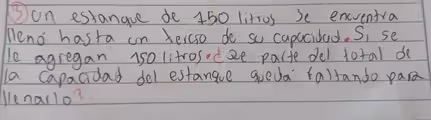 ③ Un estanque de 150 litros se encuentra
lleno hasta un tercio de su capacidad. Si se
le agregan 150 litros. ¿ Qe parte del total de
la capacidad del estanque queda faltando para
llenarlo?